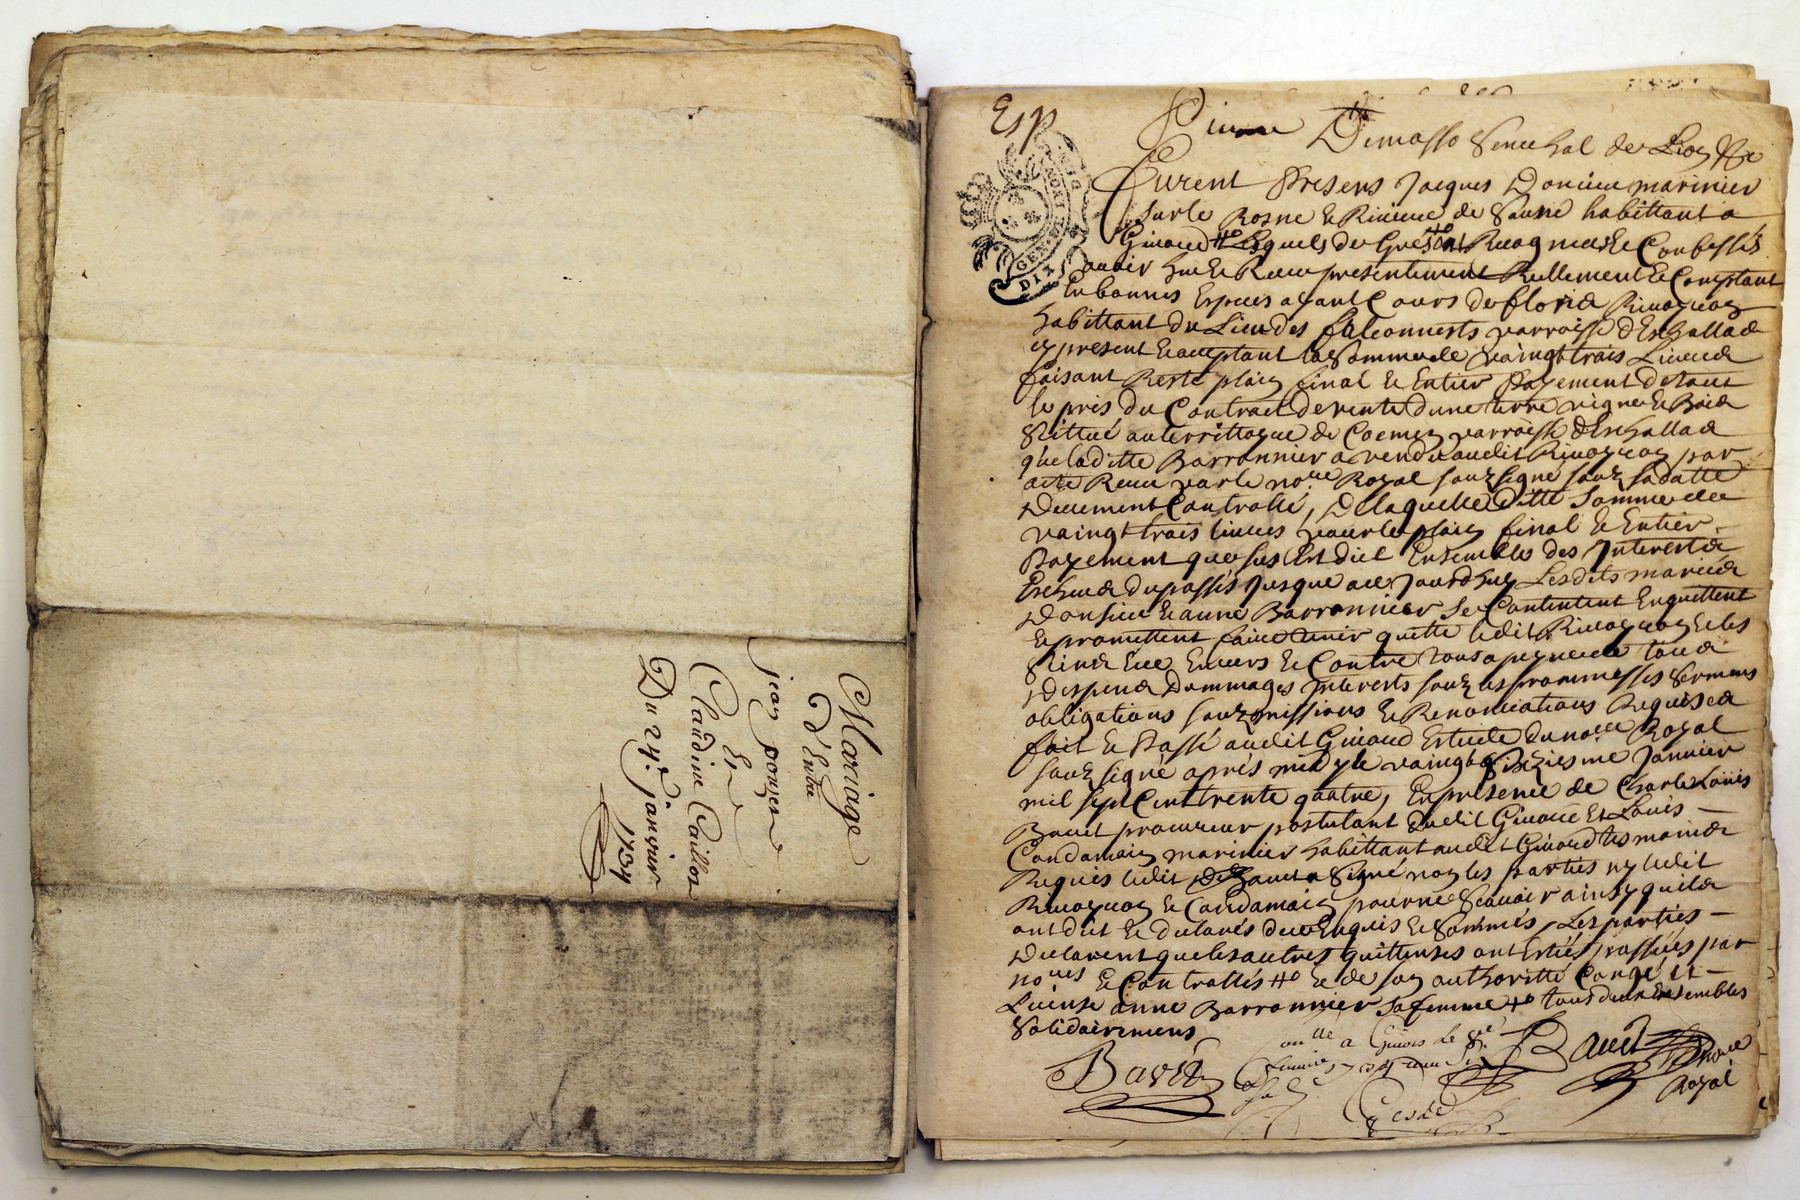 Mariage
d'entre
jean ponzon
Et
Claudine Caillot
Du 24e. janvier
1734
Esp
GENER
DIX
Senechal de Lion
Furent Presens Jacques Donsieu marinier
sur le Rosne & Riviere de Saune habittant a
Givord Lesquels de Gré ont Recogneu & Confessés
avoir heu & Receu presentement Reellement & Comptant
En bonnes Especes ayant Cours de
habittant du Lieu des parroisse d'Eschallas
cy present & acceptant la Somme de vaingt trois Livres
faisant Reste plain final & Entier Payement de tout
le pris du Contract de vente d'une terre vigne & Bois
Scittué au territtoyre de parroisse d'Eschallas
que laditte Barronnier a vendu audit par
acte Receu par le nore. Royal souz signé souz sa datte
Deuement Controllé, De laquelle ditte Somme de
vaingt trois livres pour le plain final & Entier
Payement que sus Est dict Ensembles des Interests
Escheus du passés Jusque a ce Jourdhuy Lesdits mariés
Donsieu & anne Barronnier Se Contentent Enquittent
& promettent faire tenir quitte ledit & les
Siens Envers & Contre tous a peyne de tous
despens Dommages Interests souz les prommesses Sermens
obligations souzmissions & Renonciations Requises
fait & Passé audit Givord Estude du nore Royal
souz signé aprés midy le vaingt janvier
mil sept Cent trente quatre, En presence de Charle Louis
Bauet procureur postulant dudit Givord Et Louis
Condamain marinier habittant audit Givord tesmoins
Requis ledit Bauet a Signé non les parties ny ledit
& Condamain pour ne Scavoir ainsy quils
ont dit & declarés de ce Enquis & Sommés, Les parties
Declarent que les autres quittenses ont Estés passées par
nores & Controllés & de son authoritté Congé et
License anne Barronnier sa femme tous deux Ensembles
Solidairement
Bavet
onlle a Givors le
Royal